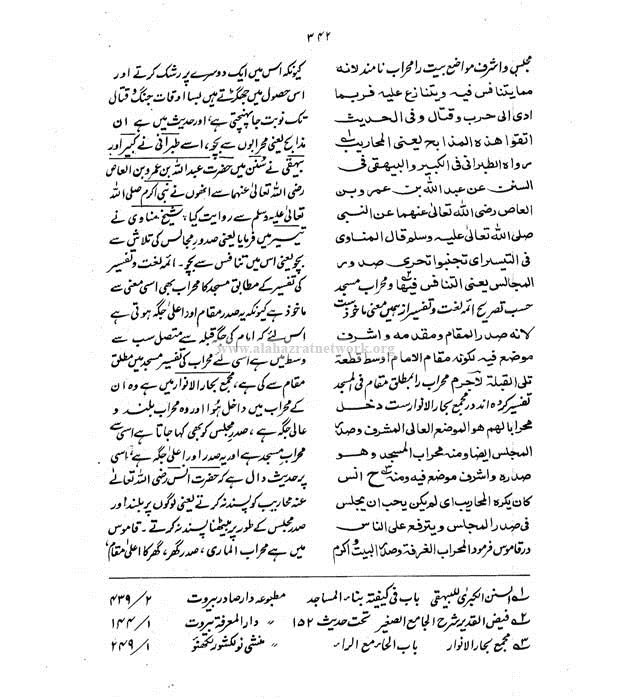 ۳۴۲
مجلس و اشرف مواضع بیت را محراب نامند لانه
مما یتنافس فیه ویتنازع علیه فربما
ادی الی حرب وقتال وفی الحدیث
اتقوا هذه المذابح یعنی المحاریب۱
رواه الطبرانی فی الکبیر والبیهقی فی
السنن عن عبد الله بن عمرو بن
العاص رضی الله تعالی عنهما عن النبی
صلی الله تعالی علیه وسلم قال المناوی
فی التیسیر ای تجنبوا تحری صدور
المجالس یعنی التنافس فیها۲ ومحراب مسجد
حسب تصریح ائمہ لغت وتفسیر از ہمیں معنی ماخوذ ست
لانه صدر المقام ومقدمه واشرف
موضع فیه لکونه مقام الامام اوسط قطعة
تلی القبلة لاجرم محراب را بمطلق مقام فی المسجد
تفسیر کردہ اند در مجمع بحار الانوار ست دخل
محرابا لهم هو الموضع العالی المشرف وصدر
المجلس ایضا ومنه محراب المسجد وهو
صدره واشرف موضع فیه ومنه ح انس
کان یکره المحاریب ای لم یکن یحب ان یجلس
فی صدر المجلس ویترفع علی الناس۳
در قاموس فرمود المحراب الغرفة وصدر البیت واکرم
کیونکہ اس میں ایک دوسرے پر رشک کرتے اور
اس حصول میں جھگڑتے ہیں بسا اوقات جنگ و قتال
تک نوبت جا پہنچتی ہے، اور حدیث میں ہے ان
مذابح یعنی محرابوں سے بچو، اسے طبرانی نے کبیر اور
بیہقی نے سنن میں حضرت عبد اللہ بن عمرو بن العاص
رضی اللہ تعالٰی عنہما سے انھوں نے نبی اکرم صلی اللہ
تعالٰی علیہ وسلم سے روایت کیا، شیخ مناوی نے
تیسیر میں فرمایا یعنی صدور مجالس کی تلاش سے
بچو یعنی اس میں تنافس سے بچو۔ ائمہ لغت و تفسیر
کی تفسیر کے مطابق مسجد کا محراب بھی اسی معنی سے
ماخوذ ہے کیونکہ یہ صدر مقام اور اعلٰی جگہ ہوتی ہے
اس لئے کہ امام کی جگہ قبلہ سے متصل سب سے
وسط میں ہے اسی لئے محراب کی تفسیر مسجد میں مطلق
مقام سے کی ہے، مجمع بحار الانوار میں ہے وہ ان
کے محراب میں داخل ہُوا اور وہ محراب بلند و
عالی جگہ ہے، صدر مجلس کو بھی کہا جاتا ہے اسی سے
محراب مسجد ہے اور یہ صدر اور اعلٰی جگہ ہے، اسی
پر حدیث دال ہے کہ حضرت انس رضی اللہ تعالٰی
عنہ محاریب کو پسند نہ کرتے یعنی لوگوں پر بلند اور
صدر مجلس کے طور پر بیٹھنا پسند نہ کرتے۔ قاموس
میں ہے محراب الماری، صدر گھر، گھر کا اعلٰی مقام،
www.alahazratnetwork.org
۱ السنن الکبرٰی للبیہقی باب فی کیفیۃ بناء المساجد مطبوعہ دار صادر بیروت ۲/ ۴۳۹
۲ فیض القدیر شرح الجامع الصغیر تحت حدیث ۱۵۲ ״ دار المعرفۃ بیروت ۱/ ۱۴۴
۳ مجمع بحار الانوار باب الحاء مع الراء ״ منشی نولکشور لکھنؤ ۱/ ۲۴۹